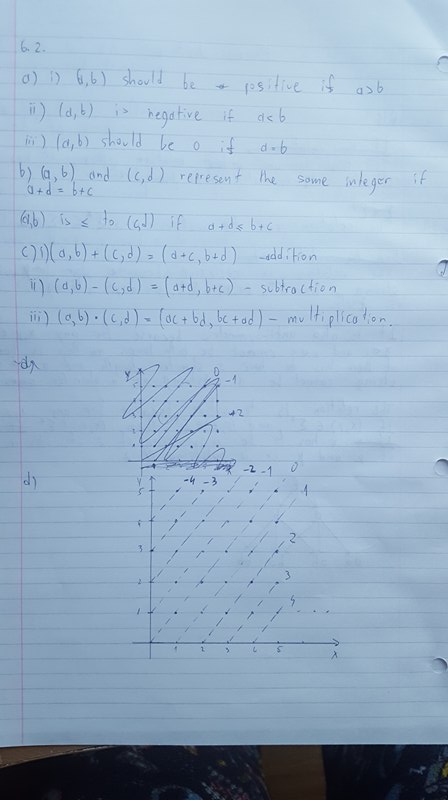 6.2.
a) i) (a,b) should be positive if a>b
ii) (a,b) is negative if a<b
iii) (a,b) should be 0 if a=b
b) (a,b) and (c,d) represent the same integer if
a+d = b+c
(a,b) is ≤ to (c,d) if a+d ≤ b+c
c) i) (a,b) + (c,d) = (a+c, b+d) - addition
ii) (a,b) - (c,d) = (a+d, b+c) - subtraction
iii) (a,b) · (c,d) = (ac+bd, bc+ad) - multiplication.
d)
y 0
-1
+2
d) y -4 -3 -2 -1 0
5 1
4
3 2
2 3
1 4 . . .
1 2 3 4 5 x